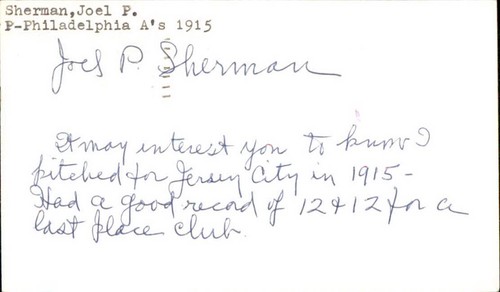 Sherman,Joel P.
P-Philadelphia A's 1915
Joel P. Sherman
It may interest you to know I
pitched for Jersey City in 1915-
Had a good record of 12 & 12 for a
last place club.